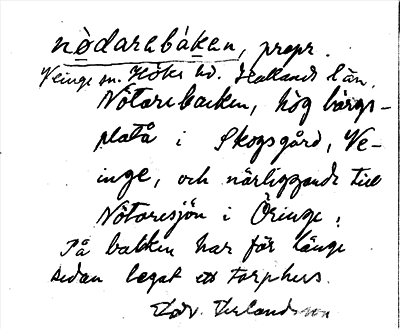 nòdarebáken, prepr.
Veinge sn. Höks hd. Hallands län.
Nötarebacken, hög bärgs-
platå i Skogsgård, Ve-
inge, och närliggande till
Nötaresjön i Öringe.
På bakken har för länge
sedan legat ett torphus.
Edv. Zerlandsson